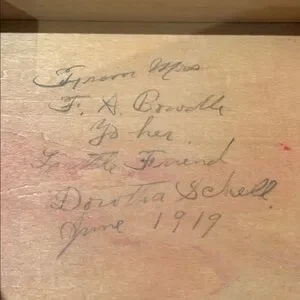 From Mrs
F. A. Powell
To her
Little Friend
Dorotha Schell.
June 1919